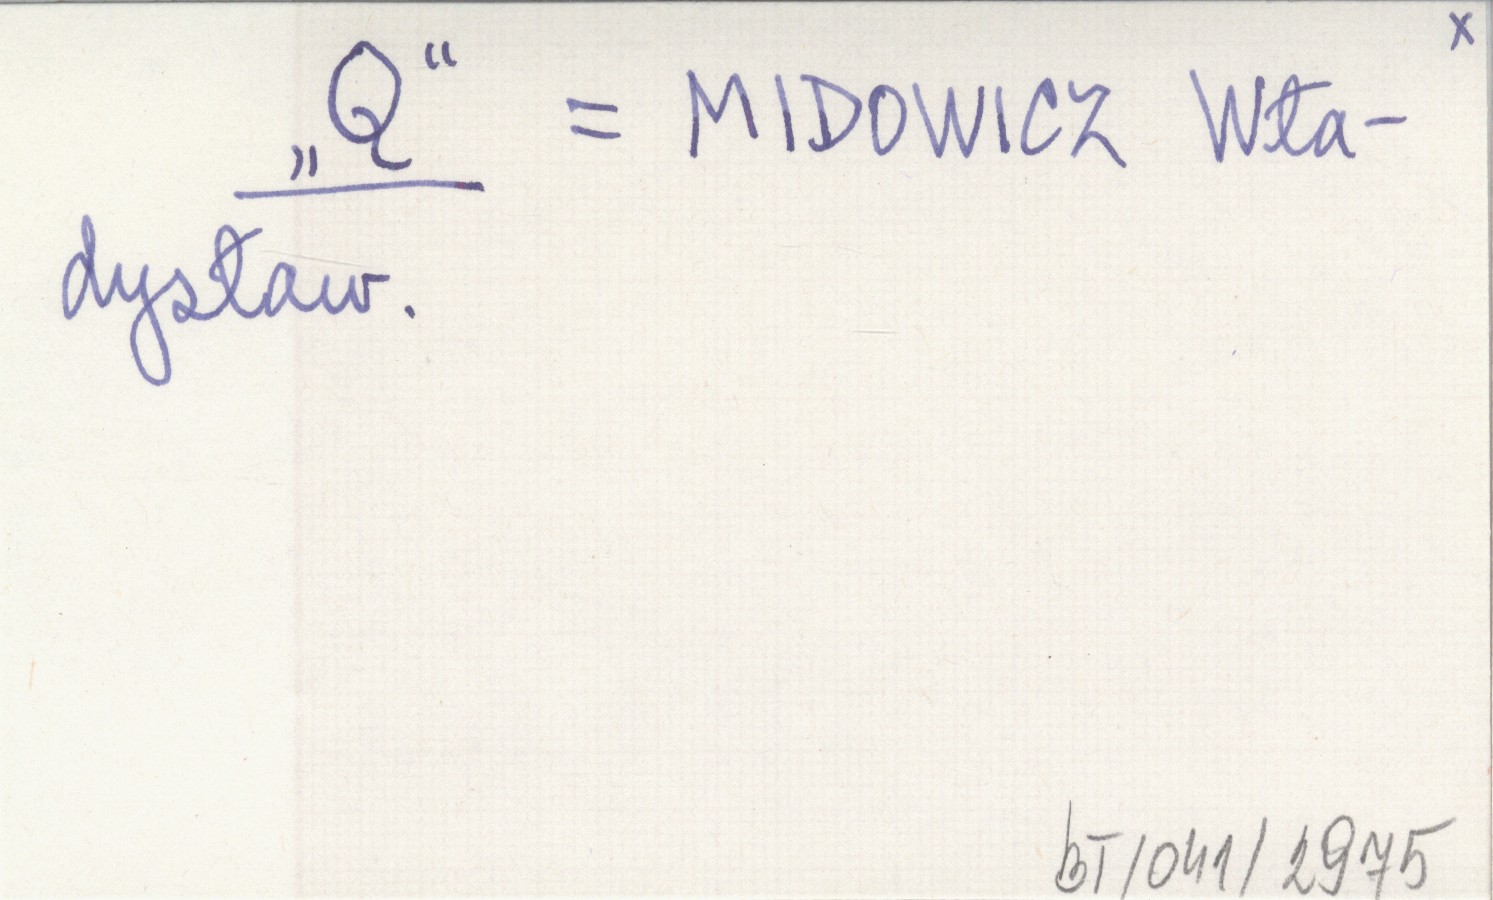 x
„Q“ = MIDOWICZ Wła-
dysław.
BT/041/2975